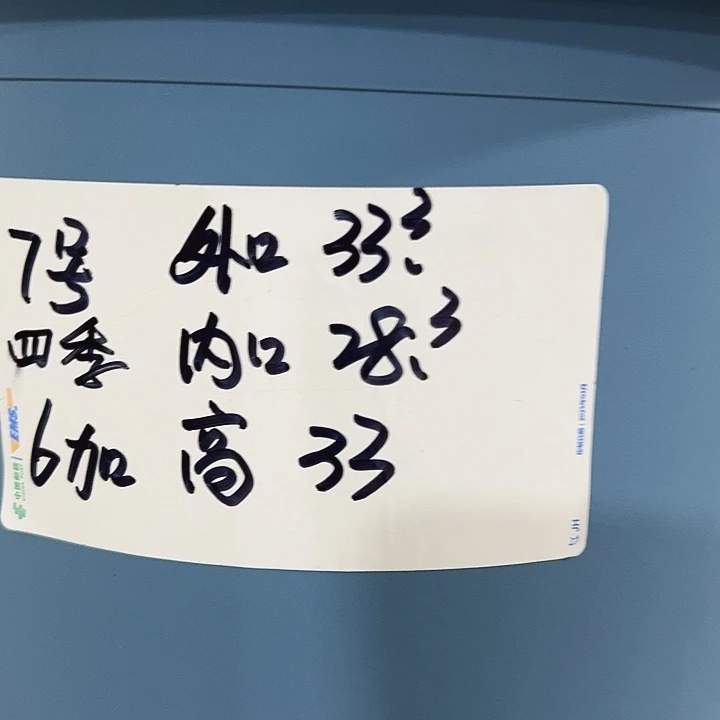 7号 外口 33.3
四季 内口 28.3
6加 高 33
EMS
中国邮政